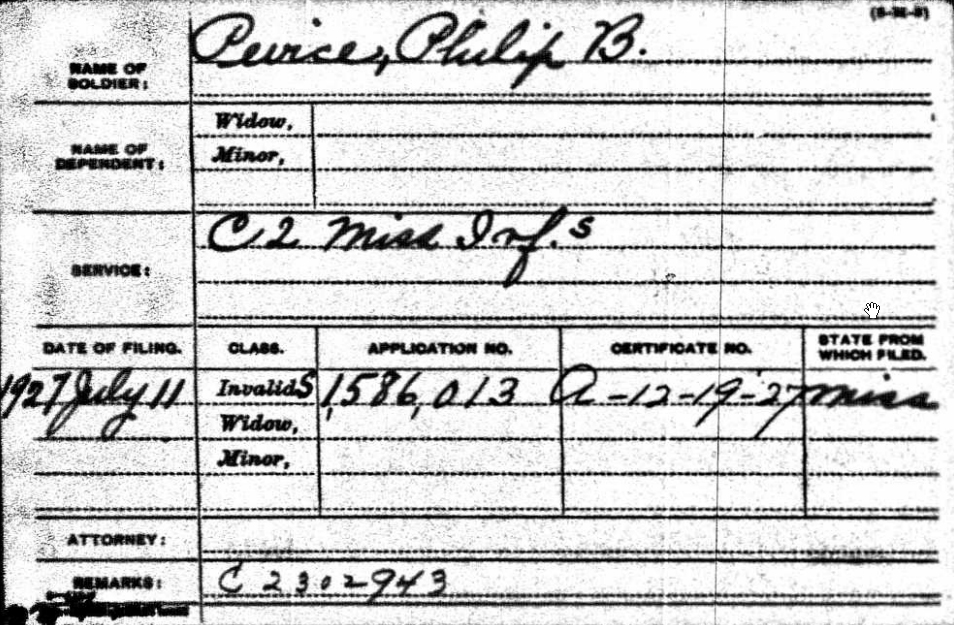 (3-32-3)
NAME OF SOLDIER: Peirce, Philip B.
NAME OF DEPENDENT: Widow,
Minor,
SERVICE: C 2 Miss Inf. S
DATE OF FILING. CLASS. APPLICATION NO. CERTIFICATE NO. STATE FROM WHICH FILED.
1927 July 11 Invalid S 1,586,013 A-12-19-27 Miss
Widow,
Minor,
ATTORNEY:
REMARKS: C 2302943